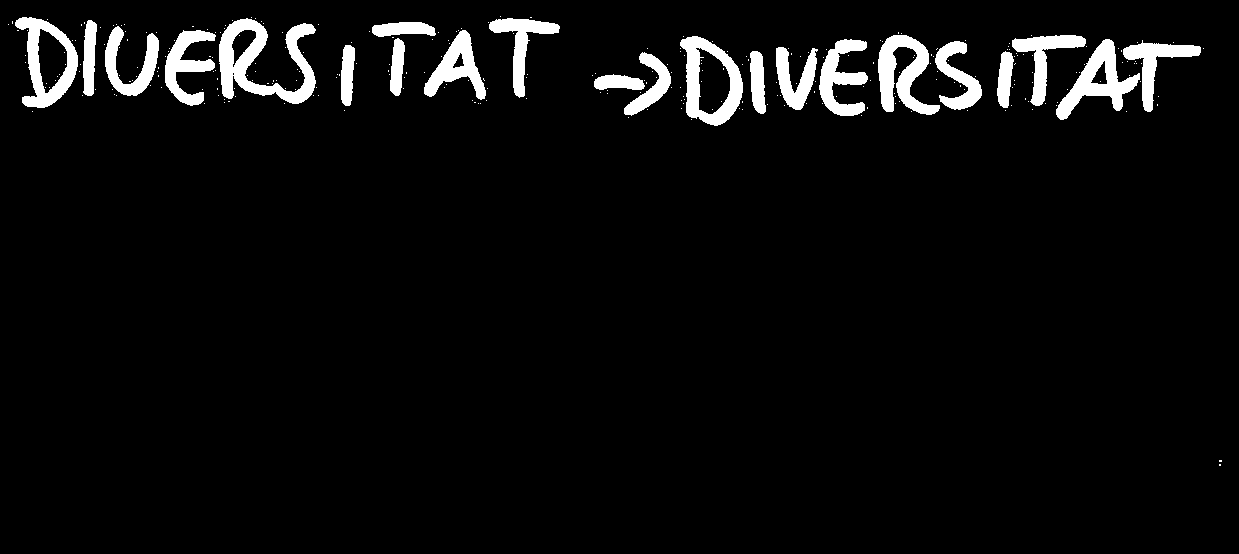 DIUERSITAT → DIVERSITAT